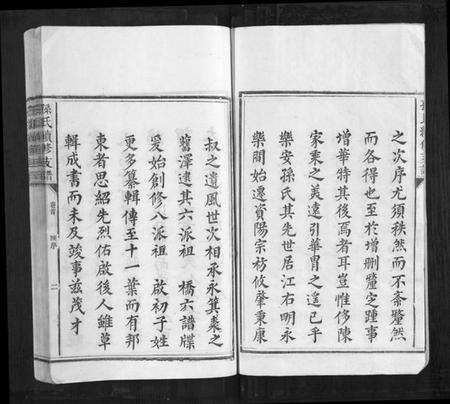 之次序尤須秩然而不紊釐然
而各得也至於增刪釐定踵事
增華特其後焉者耳豈惟侈陳
家乘之美遠引華胄之遙已乎
樂安孫氏其先世居江右明永
樂間始遷資陽宗祊攸肇秉康
叔之遺風世次相承永箕裘之
舊澤逮其六派祖 橋六譜牒
爰始創修八派祖 啟初子姓
更多纂輯傳至十一葉而有邦
東者思紹先烈佑啟後人雖草
輯成書而未及竣事茲茂才
孫氏續修支譜
卷首
陳序
二